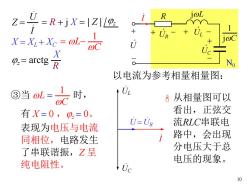 Z = U̇/İ = R + jX = |Z|∠φz
X = X_L + X_C = ωL − 1/ωC
φz = arctg X/R
İ R jωL
+ + U̇_R − + U̇_L − +
U̇ U̇_C 1/jωC
− − N₀
以电流为参考相量相量图:
③当 ωL = 1/ωC 时,
有 X = 0 , φz = 0。
表现为电压与电流
同相位,电路发生
了串联谐振,Z 呈
纯电阻性。
U̇_L
U̇ = U̇_R
İ
U̇_C
从相量图可以
看出,正弦交
流RLC串联电
路中,会出现
分电压大于总
电压的现象。
10